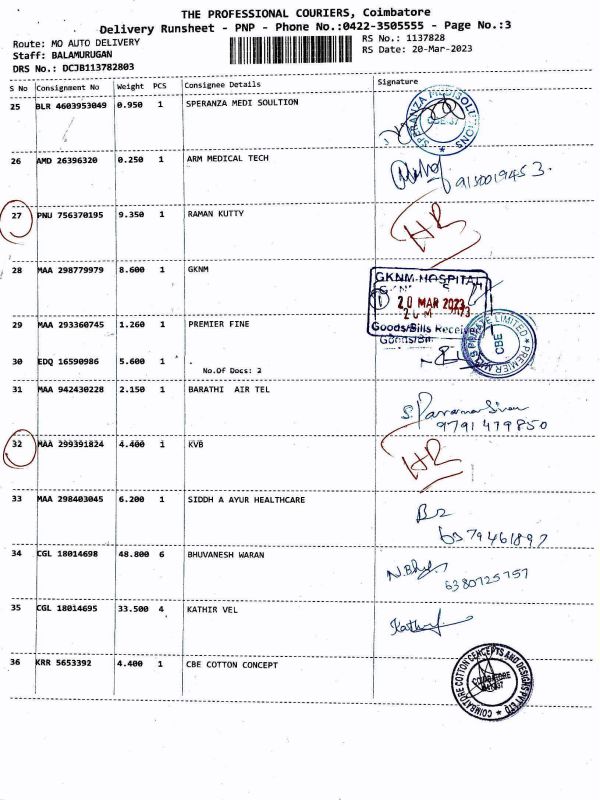 THE PROFESSIONAL COURIERS, Coimbatore
Delivery Runsheet - PNP - Phone No.:0422-3505555 - Page No.:3
Route: MO AUTO DELIVERY
RS No.: 1137828
Staff: BALAMURUGAN
RS Date: 20-Mar-2023
DRS No.: DCJB113782803
S No Consignment No Weight PCS Consignee Details Signature
25 BLR 4603953049 0.950 1 SPERANZA MEDI SOULTION
SPERANZA MEDISOLUTIONS
CBE-37
26 AMD 26396320 0.250 1 ARM MEDICAL TECH
9150019453.
27 PNU 756370195 9.350 1 RAMAN KUTTY HR
28 MAA 298779979 8.600 1 GKNM
GKNM-HOSPITAL
20 MAR 2023
Goods/Bills Received
29 MAA 293360745 1.260 1 PREMIER FINE
CBE
30 EDQ 16590986 5.600 1 .
No.Of Docs: 2
31 MAA 942430228 2.150 1 BARATHI AIR TEL
9791479850
32 MAA 299391824 4.400 1 KVB HR
33 MAA 298403045 6.200 1 SIDDH A AYUR HEALTHCARE
6579461897
34 CGL 18014698 48.800 6 BHUVANESH WARAN
6380725757
35 CGL 18014695 33.500 4 KATHIR VEL
36 KRR 5653392 4.400 1 CBE COTTON CONCEPT
COIMBATORE COTTON CONCEPTS AND DESIGNS PVT LTD